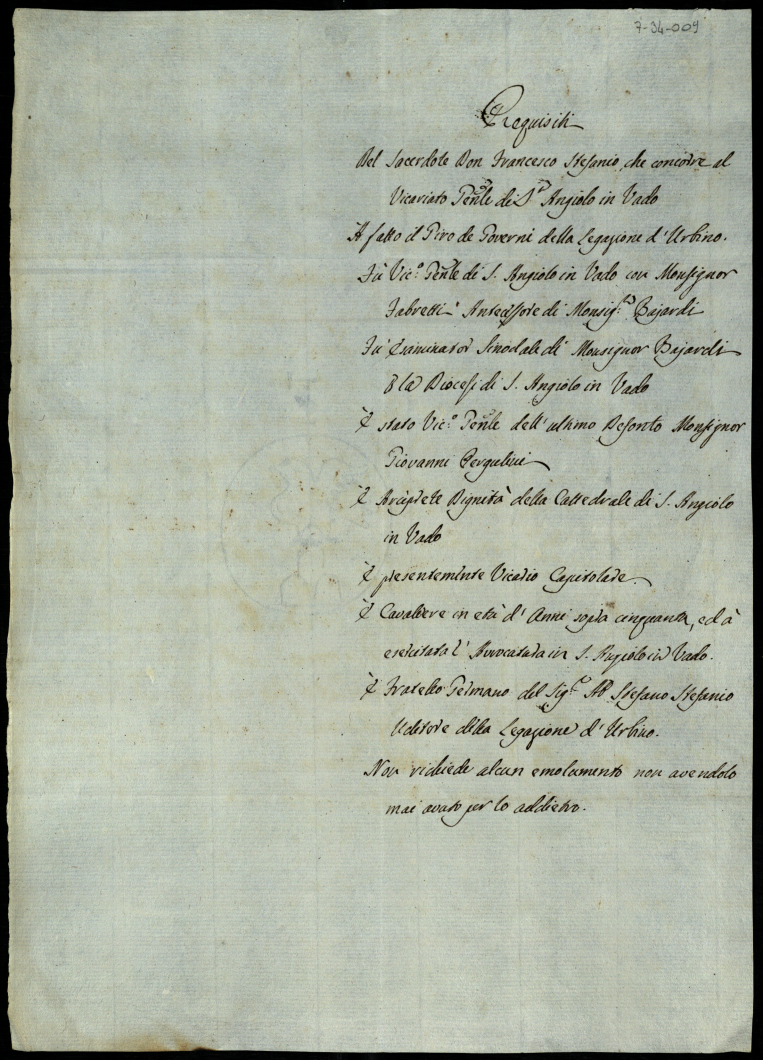 7-34-009
Requisiti
Del Sacerdote Don Francesco Stefanio, che concorre al
Vicariato Gen̅le di S.to Angiolo in Vado
A fatto il Giro de Governi della Legazione d'Urbino.
Fù Vic.o Gen̅le di S. Angiolo in Vado con Monsignor
Fabretti Antecessore di Monsig.r Bajardi
Fù Esaminator Sinodale di Monsignor Bajardi
P la Diocesi di S. Angiolo in Vado
È stato Vic.o Gen̅le dell'ultimo Defonto Monsignor
Giovanni Pergulini
È Arciprete Dignità della Cattedrale di S. Angiolo
in Vado
È presentemente Vicario Capitolare.
È Cavaliere in età d'Anni sopra cinquanta, ed à
esercitata l'Avvocatura in S. Angiolo in Vado.
È Fratello Germano del Sig.r AB Stefano Stefanio
Uditore della Legazione d'Urbino.
Non richiede alcun emolumento non avendolo
mai avuto per lo addietro.